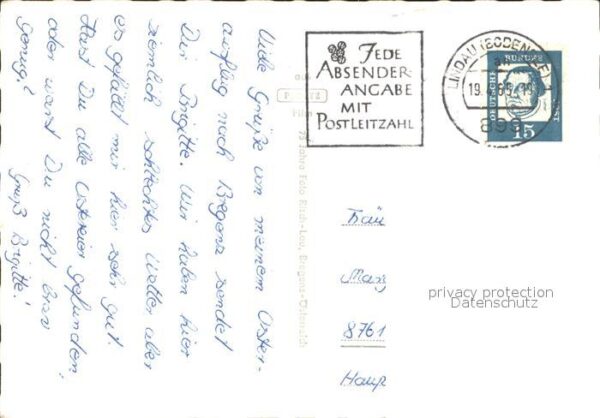 Viele Grüße von meinem Oster-
ausflug nach Bregenz sendet
Dir Brigitte. Wir haben hier
ziemlich schlechtes Wetter aber
es gefällt mir hier sehr gut.
Hast Du alle Ostereier gefunden
oder warst Du nicht brav
genug?
Gruß Brigitte!
JEDE
ABSENDER-
ANGABE
MIT
POSTLEITZAHL
LINDAU (BODENSEE)
19.4.65
899
DEUTSCHE BUNDESPOST
15
Foto Risch-Lau, Bregenz-Österreich
8761
privacy protection
Datenschutz